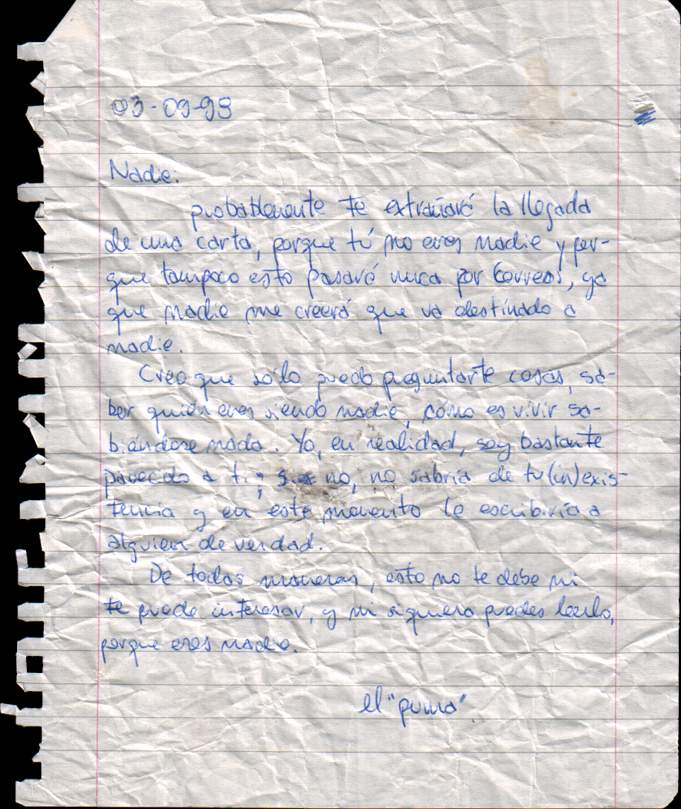 03-09-98
Nadie:
probablemente te extrañará la llegada
de una carta, porque tú no eres nadie y por-
que tampoco esto pasará nunca por Correos, ya
que nadie me creerá que va destinado a
nadie.
Creo que sólo puedo preguntarte cosas, sa-
ber quién eres siendo nadie, cómo es vivir sa-
biéndose nada. Yo, en realidad, soy bastante
parecido a ti; no, no sabría de tu (in)exis-
tencia y en este momento le escribiría a
alguien de verdad.
De todas maneras, esto no te debe ni
te puede interesar, y ni siquiera puedes leerlo,
porque eres nadie.
el "puma".